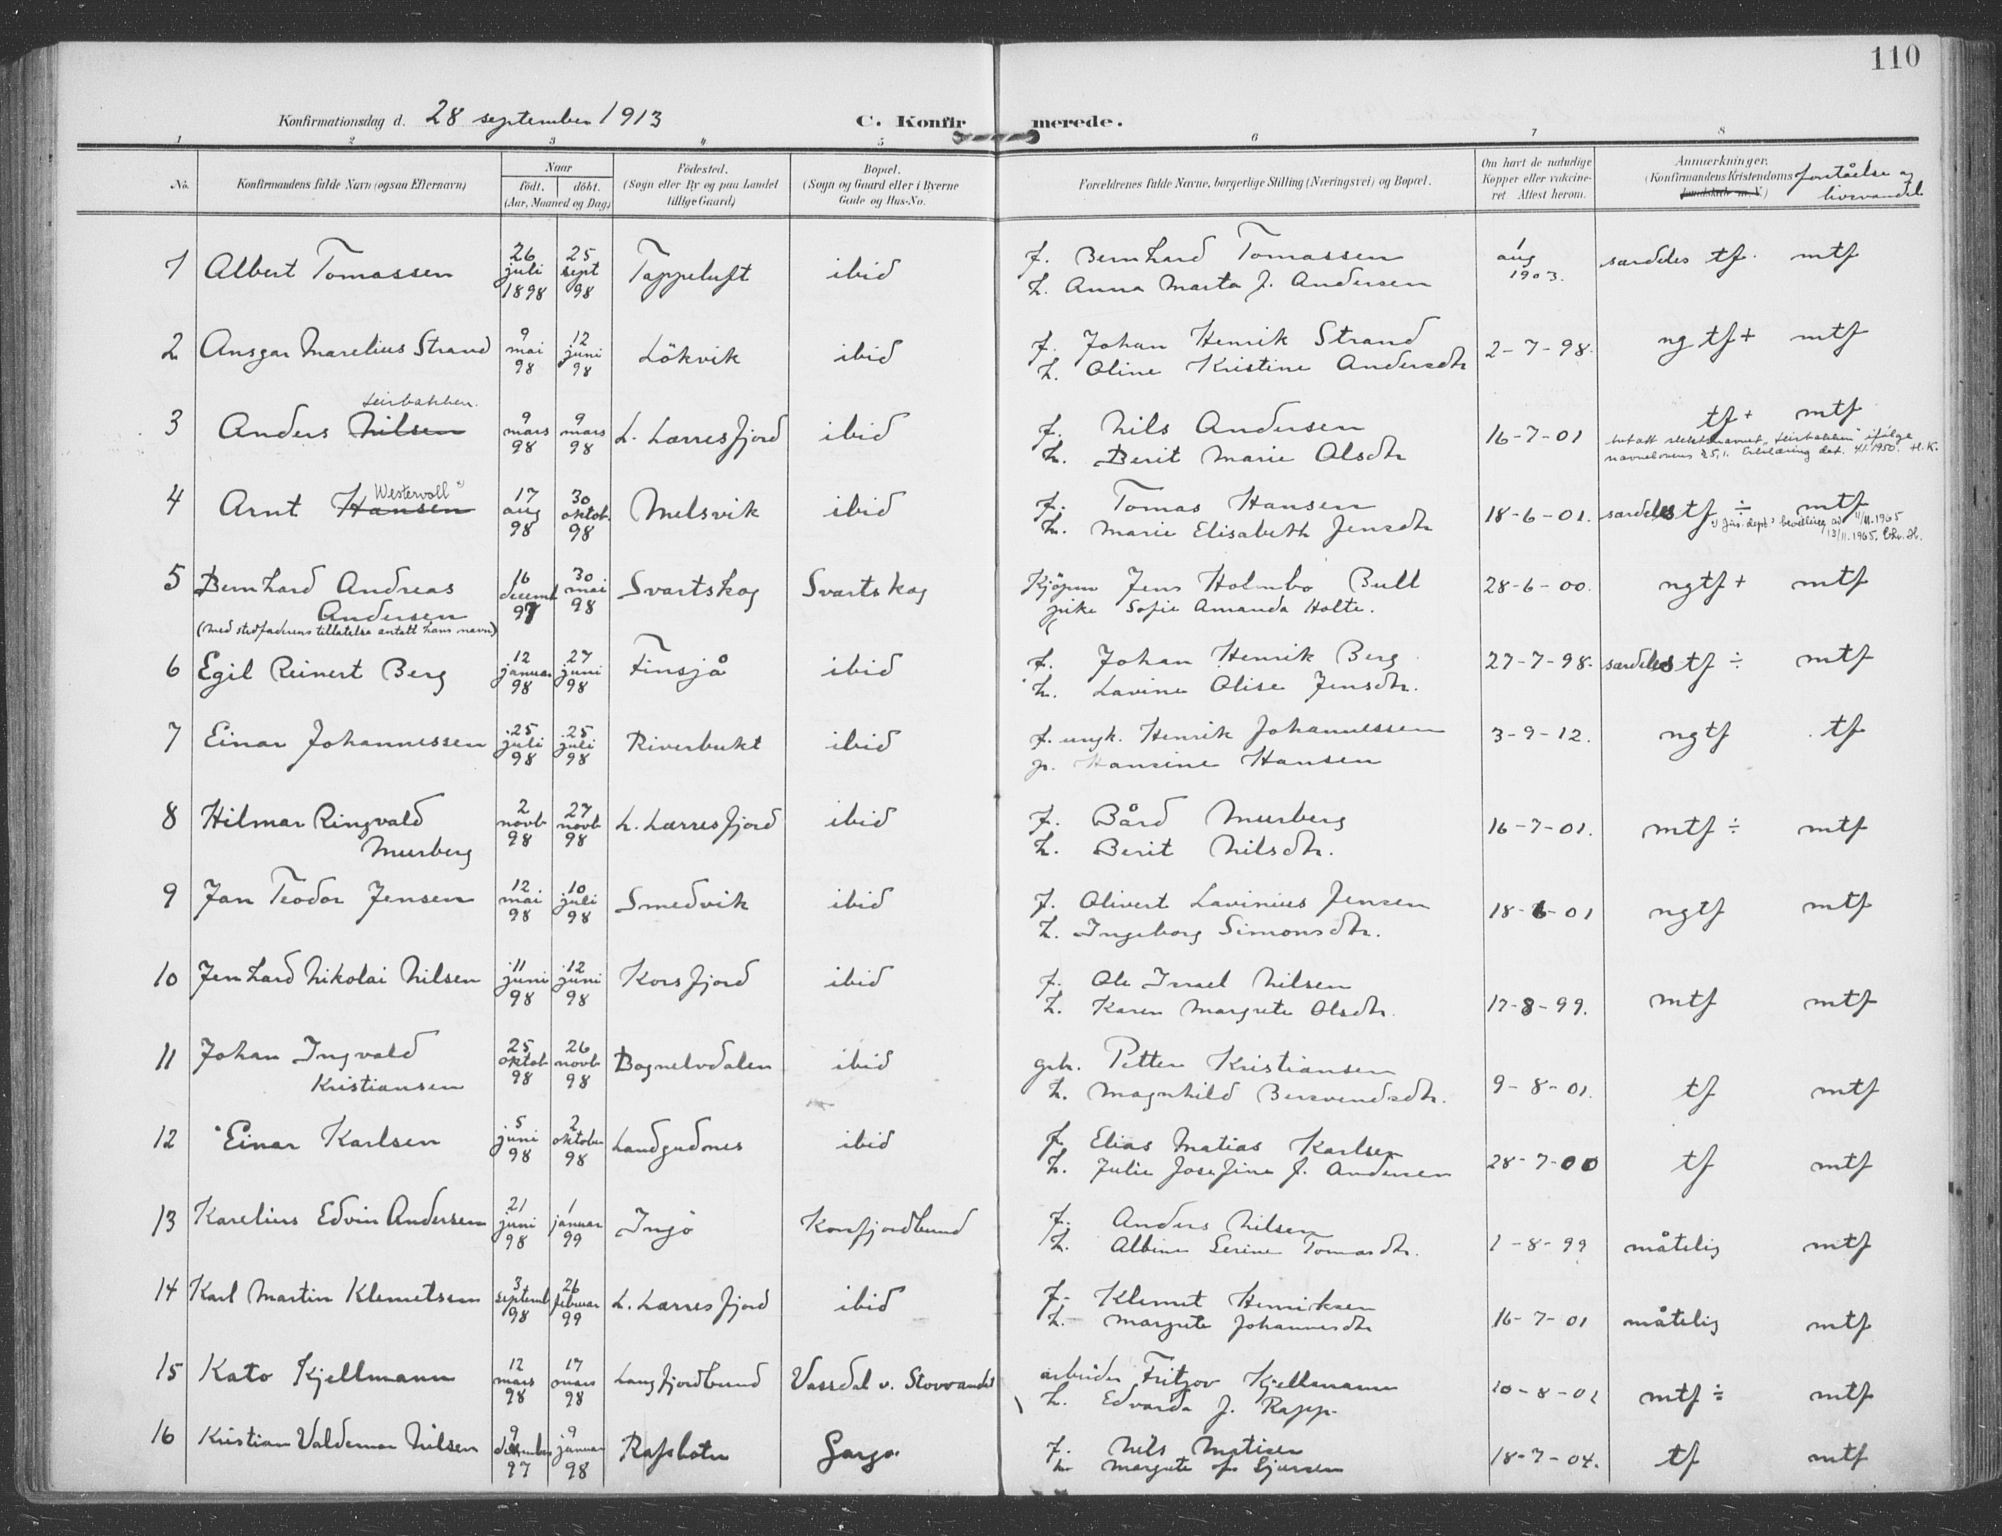 110
Konfirmationsdag d. 28 september 1913 C. Konfirmerede.
1 2 3 4 5 6 7 8
No. Konfirmandens fulde Navn (ogsaa Efternavn) Naar födt. döbt. (Aar, Maaned og Dag) Födested. (Sogn eller By og paa Landet tillige Gaard) Bopæl. (Sogn og Gaard eller i Byerne Gade og Hus-No. Forældrenes fulde Navne, borgerlige Stilling (Næringsvei) og Bopæl. Om havt de naturlige Kopper eller vaccineret Attest herom. Anmærkninger. (Konfirmandens Kristendoms forståelse og livsvandel
1 Albert Tomassen 26 juli 1898 25 sept 98 Tappeluft ibid f. Bernhard Tomassen 1 aug 1903. særdeles tf. mtf
h. Anna Marta J. Andersen
2 Ansgar Marelius Strand 9 mai 98 12 juni 98 Lökvik ibid f. Johan Henrik Strand 2-7-98. ng tf + mtf
h. Oline Kristine Andersdtr
Leirbakken.
3 Anders Nilsen 9 mars 98 9 mars 98 L. Lerresfjord ibid f. Nils Andersen 16-7-01 tf + mtf
h. Berit Marie Olsdtr
antatt slektsnavnet "Leirbakken" ifølge
navnelovens § 5,1. Erklæring dat. 4/1.1950. H.K.
Westervoll
4 Arnt Hansen 17 aug 98 30 oktob. 98 Melsvik ibid f. Tomas Hansen 18-6-01. særdeles tf ÷ mtf
h. Marie Elisabeth Jensdtr
Jus. dept's bevilling av 11/11.1965
13/11.1965. Chr. H.
5 Bernhard Andreas 16 decemb 97 30 mai 98 Svartskog Svartskog Kjöpm Jens Holmbo Bull 28-6-00. ngtf + mtf
Andersen pike Sofie Amanda Holte.
(med stedfaderens tillatelse antatt hans navn)
6 Egil Reinert Berg 12 januar 98 27 juni 98 Finsjå ibid f. Johan Henrik Berg 27-7-98. særdeles tf ÷ mtf
h. Lavine Olise Jensdtr.
7 Einar Johannessen 25 juli 98 25 juli 98 Riverbukt ibid f. ungk. Henrik Johannessen 3-9-12. ngtf tf
p. Hansine Hansen
8 Hilmar Ringvald 2 novb 98 27 novb 98 L. Lerresfjord ibid f. Bård Murberg 16-7-01. mtf ÷ mtf
Murberg h. Berit Nilsdtr.
9 Jan Teodor Jensen 12 mai 98 10 juli 98 Smedvik ibid f. Olivert Lavinius Jensen 18-6-01 ngtf mtf
h. Ingeborg Simonsdtr.
10 Jenhard Nikolai Nilsen 11 juni 98 12 juni 98 Korsfjord ibid f. Ole Israel Nilsen 17-8-99. mtf mtf
h. Karen Margrete Olsdtr.
11 Johan Ingvald 25 oktob 98 26 novb 98 Bognelvdalen ibid gbr. Petter Kristiansen 9-8-01. tf mtf
Kristiansen h. Magnhild Bersvendsdtr.
12 Einar Karlsen 5 juni 98 2 oktober 98 Landgudnes ibid f. Elias Matias Karlsen 28-7-00 tf mtf
h. Julie Josefine J. Andersen
13 Karelius Edvin Andersen 21 juni 98 1 januar 99 Ingö Korsfjordbund f. Anders Nilsen 1-8-99 måtelig mtf
h. Albine Serine Tomasdtr.
14 Karl Martin Klemetsen 3 septemb 98 26 februar 99 L. Lerresfjord ibid f. Klemet Henriksen 16-7-01 måtelig mtf
h. Margrete Johannesdtr
15 Kato Kjellmann 12 mars 98 17 mars 98 Langfjordbund Vassdal v. Storvandet arbeider Fritjov Kjellmann 10-8-01 mtf ÷ mtf
h. Edvarda J. Rapp
16 Kristian Valdemar Nilsen 9 desember 97 9 januar 98 Rafsbotn Gargo f. Nils Matisen 18-7-04. tf mtf
h. Margrete